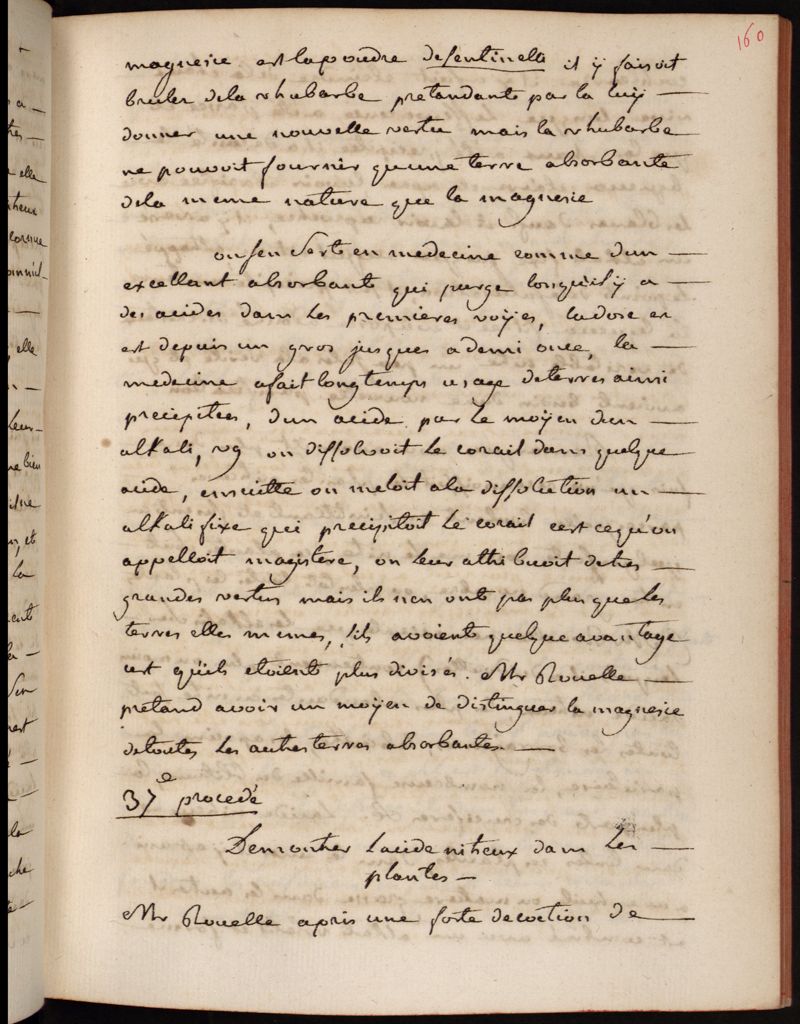 160
magnesie est la poudre desentinelle il ÿ faisoit
bruler dela rhubarbe pretandants par la luÿ —
donner une nouvelle vertu mais la rhubarbe
ne pouvoit fournir qu'une terre absorbante
dela meme nature que la magnesie
on sen sert en medecine comme dun —
excellant absorbant qui purge lorsquil ÿ a —
des acides dans les premieres voÿes, la dose en
est depuis un gros jusques a demi once, la —
medecine a fait longtemps usage de terres ainsi
precipitées, dun acide par le moÿen dun —
alkali, vg on dissolvoit le corail dans quelque
acide, ensuitte on meloit a la dissolution un —
alkali fixe qui precipitoit le corail cest ce qu'on
appelloit magistere, on leur attribuoit de tres —
grandes vertus mais ils nen ont pas plus que les
terres elles memes, sils avoient quelque avantage
cest quils etoient plus divisés. Mr Rouelle —
pretend avoir un moÿen de distinguer la magnesie
de toutes les autres terres absorbantes. —
37e procedé
Demontrer lacide nitreux dans les —
plantes —
Mr Rouelle apris une forte decoction de —